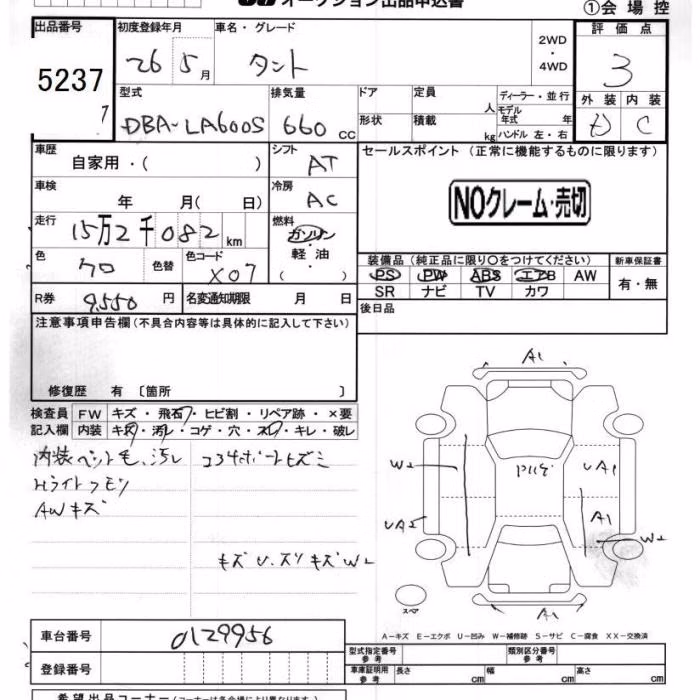 オークション出品申込書
①会場控
出品番号 初度登録年月 車名・グレード 評価点
5237 26 5月 タント 2WD・4WD 3
型式 排気量 ドア 定員 人 ディーラー・並行 外装 内装
DBA-LA600S 660cc 形状 積載 kg モデル年式 年 ハンドル 左・右 C
車歴 自家用・( ) シフト AT セールスポイント (正常に機能するものに限ります)
車検 年 月( 日) 冷房 AC
NOクレーム・売切
走行 15万2千082km 燃料 ガソリン・軽油( )
色 クロ 色替 色コード X07 装備品 (純正品に限り○をつけてください) 新車保証書
PS PW ABS エアB AW 有・無
SR ナビ TV カワ
R券 9,550円 名変通知期限 月 日
後日品
注意事項申告欄(不具合内容等は具体的に記入して下さい)
修復歴 有 〔箇所 〕
検査員 FW キズ・飛石・ヒビ割・リペア跡・×要
記入欄 内装 キズ・汚レ・コゲ・穴・スレ・キレ・破レ
内装ペット毛、汚レ
Hライトクモリ
AWキズ
キズ U.スリキズW2
A1
W2 UA1
UA2 A1 W2
スペア A1
A-キズ E-エクボ U-凹み W-補修跡 S-サビ C-腐食 XX-交換済
車台番号 0129956
登録番号
型式指定番号 参考 類別区分番号 参考
車庫証明用 参考 長さ cm 幅 cm 高さ cm
希望出品コーナー(コーナーは各会場により異なります)